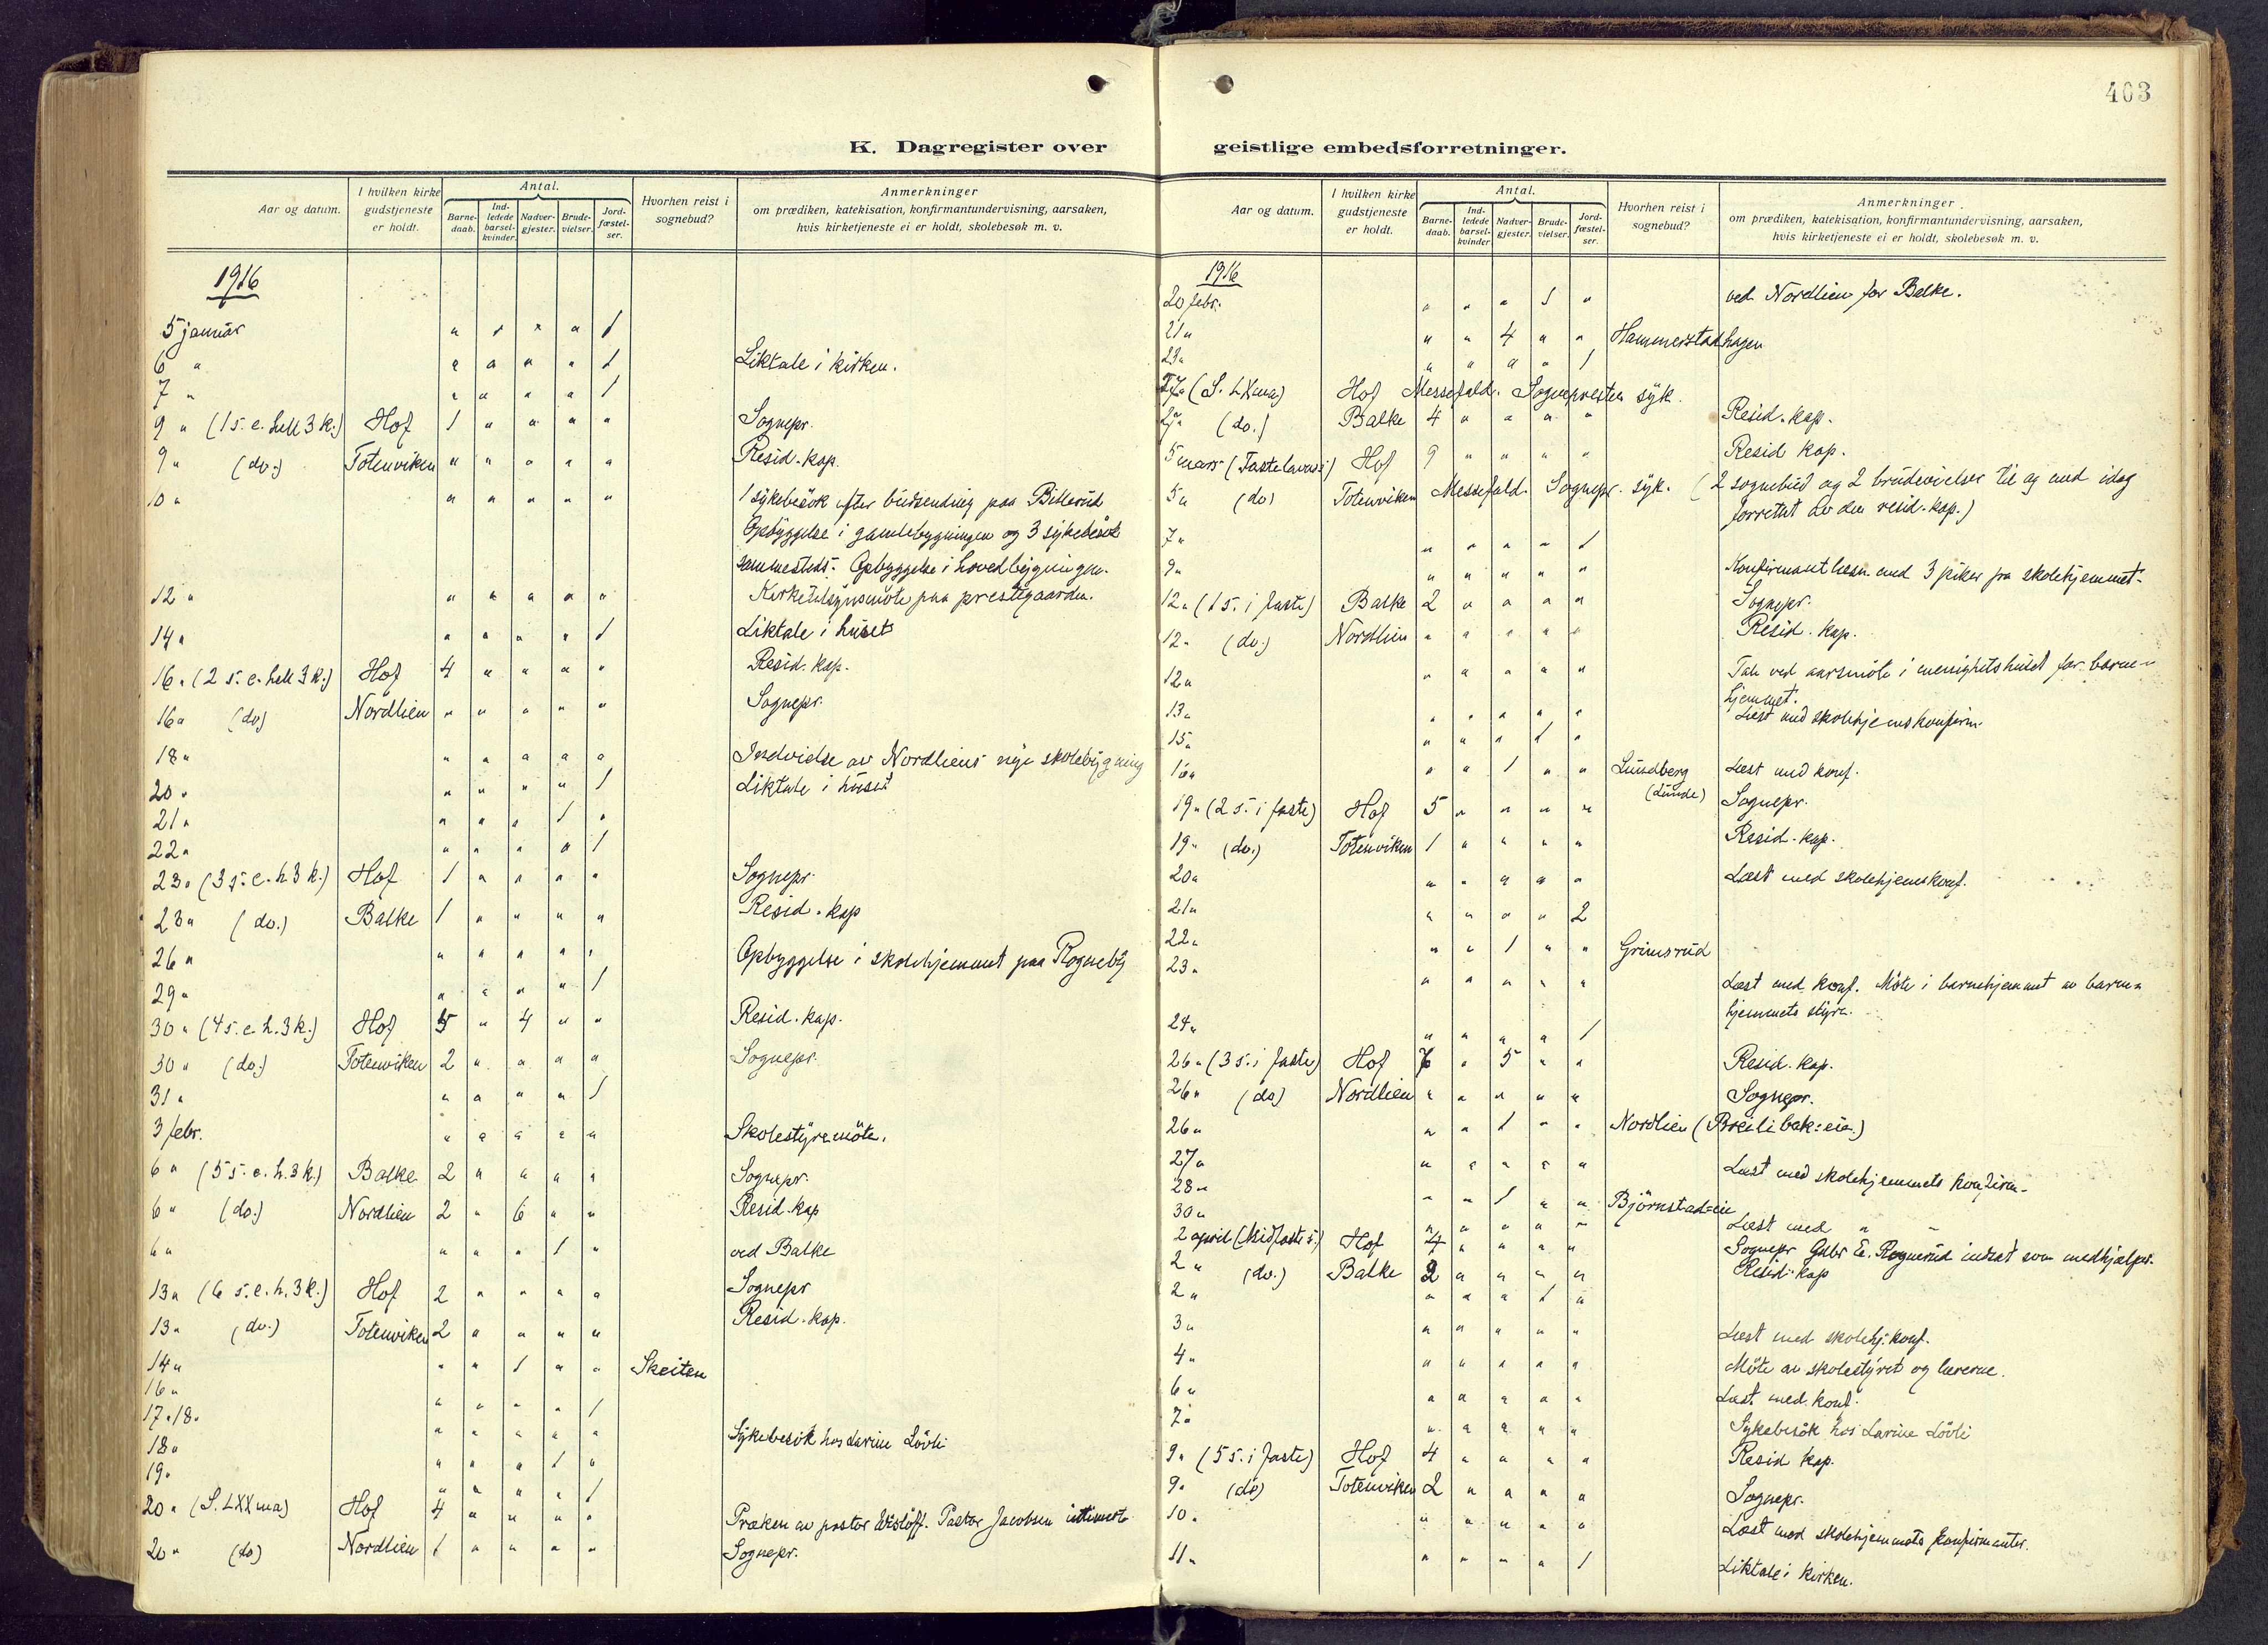 403
K. Dagregister over geistlige embedsforretninger.
Aar og datum. | I hvilken kirke gudstjeneste er holdt. | Antal. | Barne-daab. | Ind-ledede barsel-kvinder. | Nadver-gjester. | Brude-vielser. | Jord-fæstel-ser. | Hvorhen reist i sognebud? | Anmerkninger om prædiken, katekisation, konfirmantundervisning, aarsaken, hvis kirketjeneste ei er holdt, skolebesøk m. v.
1916
5 januar " " " " 1
6 " " " " " 1 Liktale i kirken.
7 " " " " " 1
9 " (1 s. e. hell 3 k.) Hof 1 " " " " Sognepr.
9 " (do.) Totenviken " " " " " Resid. kap.
10 " " " " " " 1 sykebesök efter budsending paa Billerud
Opbyggelse i gamlebygningen og 3 sykebesök
sammesteds. Opbyggelse i hovedbygningen.
12 " " " " " " Kirketilsynsmöte paa prestegaarden.
14 " " " " " 1 Liktale i huset
16 " (2 s. e. hell 3 k.) Hof 4 " " " " Resid. kap.
16 " (do) Nordlien " " " " " Sognepr.
18 " " " " " " Indvielse av Nordliens nye skolebygning
20 " " " " " 1 Liktale i huset
21 " " " " 1 "
22 " " " " " 1
23 " (3 s. e. h. 3 k.) Hof 1 " " " " Sognepr.
23 " (do.) Balke 1 " " " " Resid. kap
26 " " " " " " Opbyggelse i skolehjemmet paa Rogneby
29 " " " " " 1
30 " (4 s. e. h. 3 k.) Hof 5 " 4 " " Resid. kap.
30 " (do.) Totenviken 2 " " " " Sognepr.
31 " " " " " 1
3 febr. " " " " " Skolestyremöte.
6 " (5 s. e. h. 3 k) Balke 2 " " " " Sognepr.
6 " (do.) Nordlien 2 " 6 " " Resid. kap
6 " " " " 1 " ved Balke
13 " (6 s. e. h. 3 k.) Hof 2 " " " " Sognepr
13 " (do.) Totenviken 2 " " " " Resid. kap.
14 " " " 1 " " Skeiten
16 " " " " " 1
17 " 18 " " " " " "
18 " " " " 1 " Sykebesök hos Larine Lövli
19 " " " " " 1
20 " (S. LXXma) Hof 4 " " " " Præken av pastor Eisloff. Pastor Jacobsen intimerte
20 " (do) Nordlien 1 " " " " Sognepr.
1916
20 febr. " " " 1 " ved Nordlien for Balke.
21 " " " 4 " " Hammerstadhagen
23 " " " " " 1
27 " (S. LXma) Hof Messefald. Sognepresten syk.
27 " (do.) Balke 4 " " " " Resid. kap.
5 mars (Fastelavnss) Hof 9 " " " " Resid kap.
5 " (do) Totenviken Messefald. Sognepr. syk. (2 sognebud og 2 brudevielser til og med idag
forrettet av den resid. kap.)
7 " " " " " 1
9 " " " " " " Konfirmantlæsn. med 3 piker fra skolehjemmet.
12 " (1 s. i faste) Balke 2 " " " " Sognepr.
12 " (do.) Nordlien " " " " " Resid. kap.
12 " " " " " " Tale ved aarsmöte i menighetshuset for barne-
hjemmet.
13 " " " " " " Læst med skolehjemskonfirm.
15 " " " " 1 "
16 " " " 1 " " Lundberg (Lunde) Læst med konf.
19 " (2 s. i faste) Hof 5 " " " " Sognepr.
19 " (do.) Totenviken 1 " " " " Resid. kap.
20 " " " " " " Læst med skolehjemskonf.
21 " " " " " 2
22 " " " 1 " " Grimsrud
23 " " " " " " Læst med konf. Möte i barnehjemmet av barne-
hjemmets styre.
24 " " " " " 1
26 " (3 s. i faste) Hof 7 " 5 " " Resid. kap.
26 " (do) Nordlien " " " " " Sognepr.
26 " " " 1 " " Nordlien (Breilibak: eie.)
27 " " " " " " Læst med skolehjemmets konfirm.
28 " " " 1 " " Björnstad=eie
30 " " " " " " Læst med " "
2 april (Midfaste s.) Hof 4 " " " " Sognepr Gulbr E. Rognerud indsat som medhjælper.
2 " (do.) Balke 2 " " " " Resid. kap
2 " " " " 1 "
3 " " " " " " Læst med skolehj. konf.
4 " " " " " " Möte av skolestyret og lærerne.
6 " " " " " " Læst med konf.
7 " " " " " " Sykebesök hos Larine Lövli
9 " (5 s. i faste) Hof 4 " " " " Resid kap.
9 " (do) Totenviken 2 " " " " Sognepr.
10 " " " " " " Læst med skolehjemmets konfirmanter.
11 " " " " " 1 Liktale i kirken.